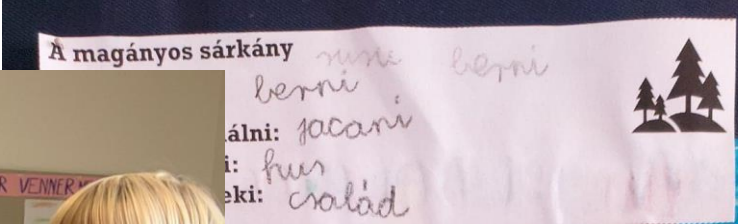 A magányos sárkány berni
berni
álni: jacani
i: hus
eki: család
R VENNER